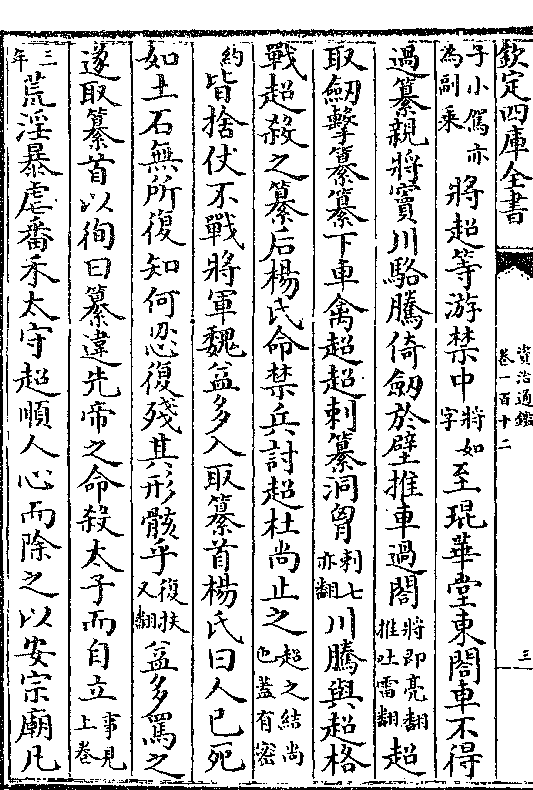 欽定四庫全書
資治通鑑
卷一百十二
三
子小駕亦
為副乘
將超等游禁中
將如
字
至琨華堂東閤車不得
過纂親將竇川駱騰倚劒於壁推車過閤
將即亮翻
推吐雷翻
超
取劒擊纂纂下車禽超超刺纂洞胷
刺七
亦翻
川騰與超格
戰超殺之纂后楊氏命禁兵討超杜尚止之
超之結尚
也蓋有密
約
皆捨仗不戰將軍魏益多入取纂首楊氏曰人已死
如土石無所復知何忍復殘其形骸乎
復扶
又翻
益多罵之
遂取纂首以徇曰纂違先帝之命殺太子而自立
事見
上卷
三
年
荒淫暴虐番禾太守超順人心而除之以安宗廟凡